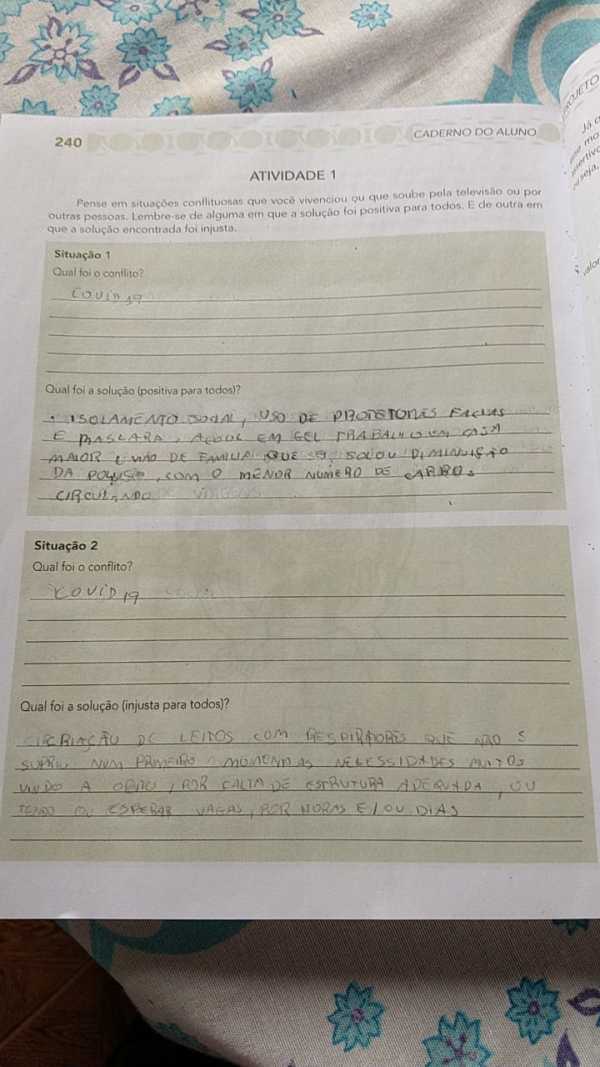 240
CADERNO DO ALUNO
ATIVIDADE 1
Pense em situações conflituosas que você vivenciou ou que soube pela televisão ou por
outras pessoas. Lembre-se de alguma em que a solução foi positiva para todos. E de outra em
que a solução encontrada foi injusta.
Situação 1
Qual foi o conflito?
COVID 19
Qual foi a solução (positiva para todos)?
ISOLAMENTO SOCIAL, USO DE FACIAS
E MASCARA, EM GEL TRABALHO EM CASA
MAIOR DE FAMILIA QUE DIMINUIÇÃO
DA , COM O MENOR NUMERO DE CARROS
CIRCULANDO
Situação 2
Qual foi o conflito?
COVID 19
Qual foi a solução (injusta para todos)?
CRIAÇÃO DE LEITOS COM RESPIRADORES QUE NÃO S
SUPRIU NUM PRIMEIRO AS NECESSIDADES
A , POR FALTA DE ESTRUTURA ADEQUADA, OU
ESPERAR VAGAS, POR HORAS E/OU DIAS
OJETO
Já
seja,
valor